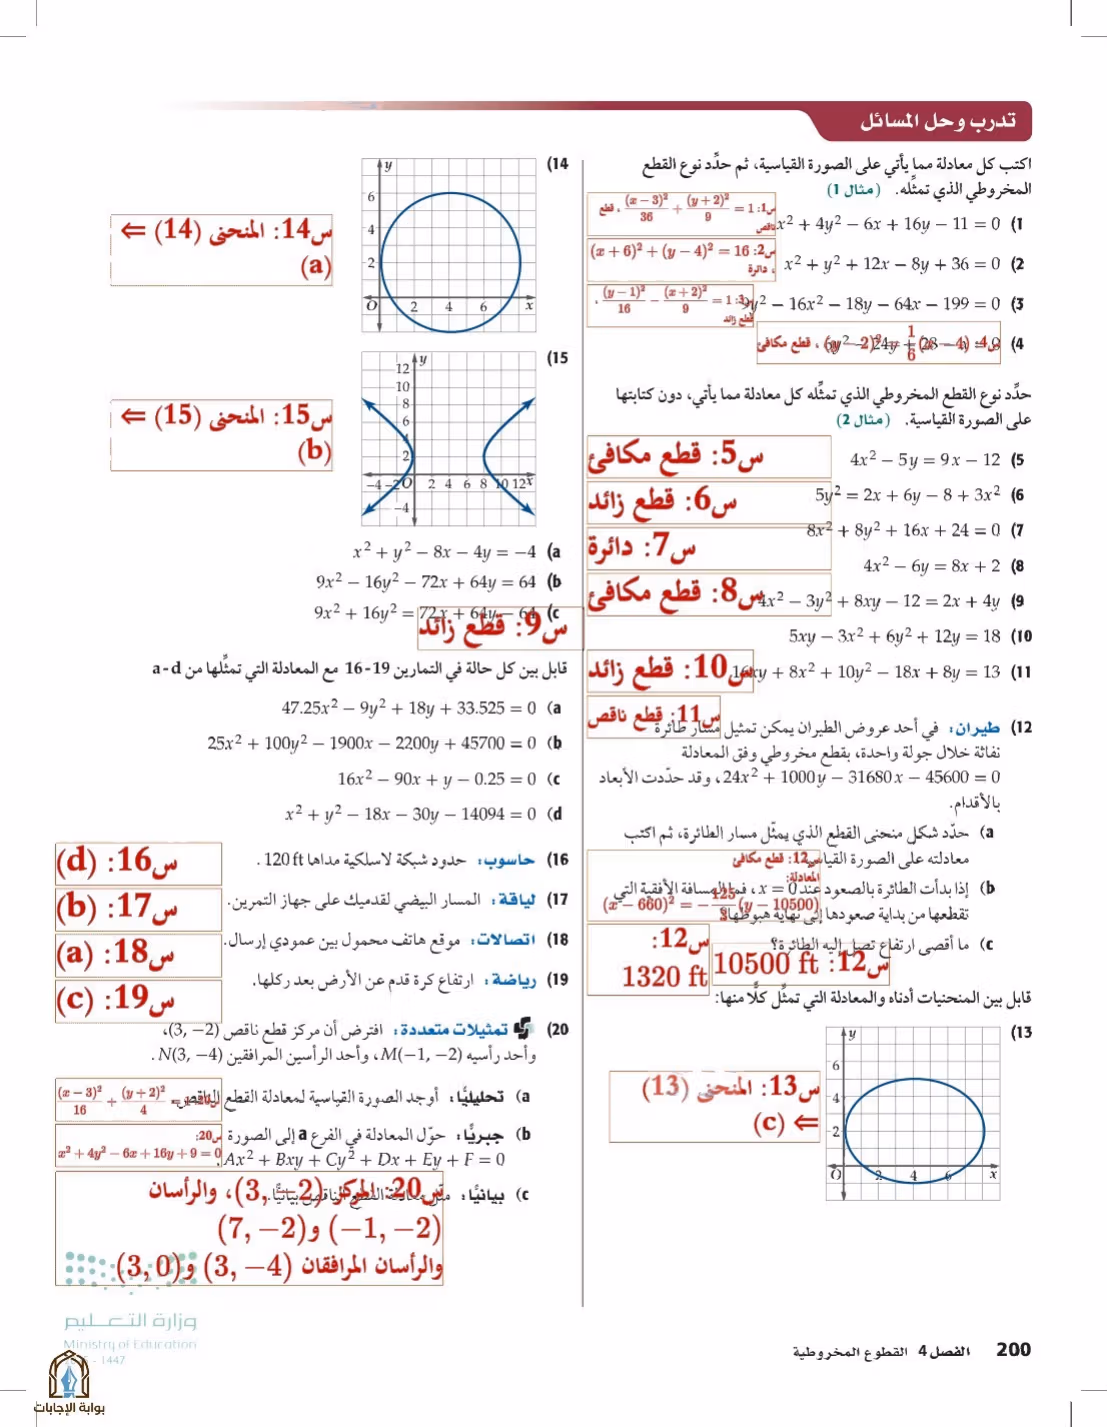 تدرب وحل المسائل
اكتب كل معادلة مما يأتي على الصورة القياسية، ثم حدِّد نوع القطع
المخروطي الذي تمثِّله. (مثال 1)
(1 x² + 4y² − 6x + 16y − 11 = 0
س1: (x − 3)²/36 + (y + 2)²/9 = 1 ، قطع ناقص
(2 x² + y² + 12x − 8y + 36 = 0
س2: (x + 6)² + (y − 4)² = 16 ، دائرة
(3 9y² − 16x² − 18y − 64x − 199 = 0
س3: (y − 1)²/16 − (x + 2)²/9 = 1 ، قطع زائد
(4 6y² − 24y + 28 − x = 0
س4: (y − 2)² = 1/6 (x − 4) ، قطع مكافئ
حدِّد نوع القطع المخروطي الذي تمثِّله كل معادلة مما يأتي، دون كتابتها
على الصورة القياسية. (مثال 2)
(5 4x² − 5y = 9x − 12
س5: قطع مكافئ
(6 5y² = 2x + 6y − 8 + 3x²
س6: قطع زائد
(7 8x² + 8y² + 16x + 24 = 0
س7: دائرة
(8 4x² − 6y = 8x + 2
س8: قطع مكافئ
(9 4x² − 3y² + 8xy − 12 = 2x + 4y
س9: قطع زائد
(10 5xy − 3x² + 6y² + 12y = 18
س10: قطع زائد
(11 16xy + 8x² + 10y² − 18x + 8y = 13
س11: قطع ناقص
(12 طيران: في أحد عروض الطيران يمكن تمثيل مسار طائرة
نفاثة خلال جولة واحدة، بقطع مخروطي وفق المعادلة
24x² + 1000y − 31680x − 45600 = 0، وقد حدّدت الأبعاد
بالأقدام.
(a حدّد شكل منحنى القطع الذي يمثّل مسار الطائرة، ثم اكتب
معادلته على الصورة القياسية
س12: قطع مكافئ
المعادلة:
(x − 660)² = −125/3 (y − 10500)
(b إذا بدأت الطائرة بالصعود عند x = 0، فما المسافة الأفقية التي
تقطعها من بداية صعودها إلى نهاية هبوطها؟
س12:
1320 ft
(c ما أقصى ارتفاع تصل إليه الطائرة؟
س12: 10500 ft
قابل بين المنحنيات أدناه والمعادلة التي تمثِّل كلًّا منها:
(13
y
6
4
2
O 2 4 6 x
س13: المنحنى (13)
⇐ (c)
(14
y
6
4
2
O 2 4 6 x
س14: المنحنى (14) ⇐
(a)
(15
y
12
10
8
6
4
2
−4 −2 O 2 4 6 8 10 12 x
−4
س15: المنحنى (15) ⇐
(b)
(a x² + y² − 8x − 4y = −4
(b 9x² − 16y² − 72x + 64y = 64
(c 9x² + 16y² = 72x + 64y − 64
قابل بين كل حالة في التمارين 19-16 مع المعادلة التي تمثِّلها من a-d
(a 47.25x² − 9y² + 18y + 33.525 = 0
(b 25x² + 100y² − 1900x − 2200y + 45700 = 0
(c 16x² − 90x + y − 0.25 = 0
(d x² + y² − 18x − 30y − 14094 = 0
(16 حاسوب: حدود شبكة لاسلكية مداها 120 ft .
س16: (d)
(17 لياقة: المسار البيضي لقدميك على جهاز التمرين.
س17: (b)
(18 اتصالات: موقع هاتف محمول بين عمودي إرسال.
س18: (a)
(19 رياضة: ارتفاع كرة قدم عن الأرض بعد ركلها.
س19: (c)
(20 تمثيلات متعددة: افترض أن مركز قطع ناقص (3, −2)،
وأحد رأسيه M(−1, −2)، وأحد الرأسين المرافقين N(3, −4) .
(a تحليليًّا: أوجد الصورة القياسية لمعادلة القطع الناقص.
س20: (x − 3)²/16 + (y + 2)²/4 = 1
(b جبريًّا: حوّل المعادلة في الفرع a إلى الصورة
Ax² + Bxy + Cy² + Dx + Ey + F = 0 .
س20:
x² + 4y² − 6x + 16y + 9 = 0
(c بيانيًّا: مثّل معادلة القطع الناقص بيانيًّا.
س20: المركز (3, −2)، والرأسان
(−1, −2) و(7, −2)
والرأسان المرافقان (3, −4) و(3, 0)
وزارة التعليم
Ministry of Education
- 1447
بوابة الإجابات
200 الفصل 4 القطوع المخروطية